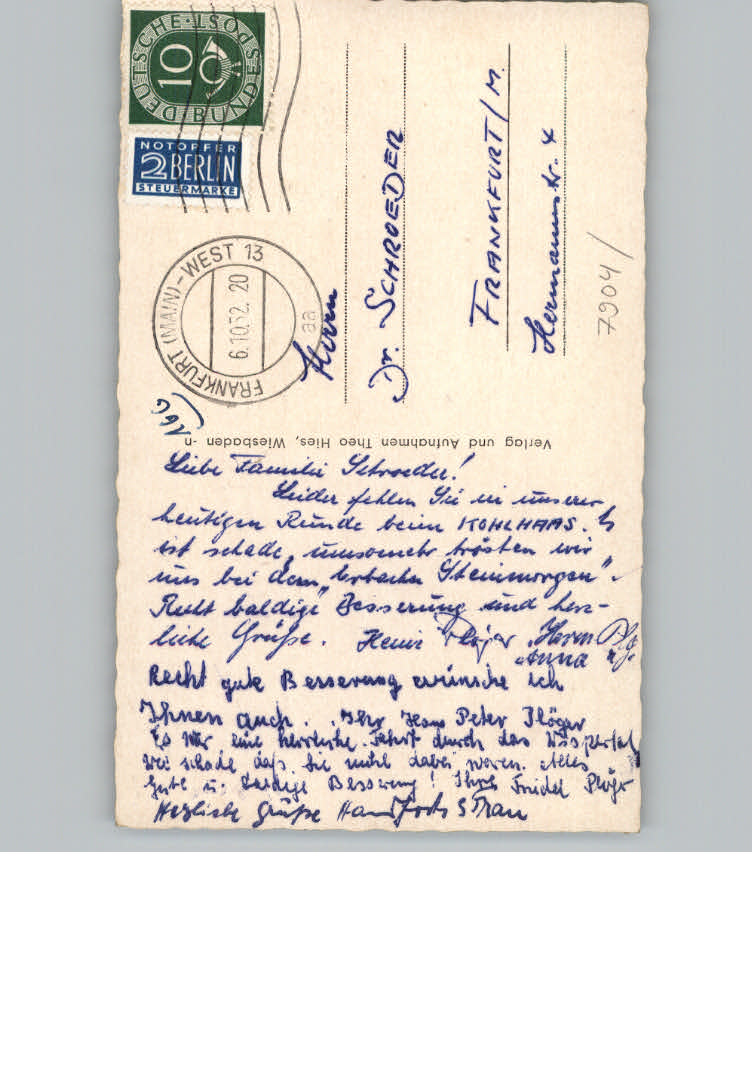 DEUTSCHE BUNDESPOST
10
NOTOPFER
2 BERLIN
STEUERMARKE
FRANKFURT (MAIN)-WEST 13
6.10.52. 20
aa
Herrn
Dr. SCHROEDER
FRANKFURT/M.
Hermannstr. 4
7904/
Verlag und Aufnahmen Theo Hies, Wiesbaden -n
Liebe Familie Schroeder!
Leider fehlen Sie in unserer
heutigen Runde beim KOHLHAAS. Es
ist schade, umsomehr trösten wir
uns bei dem "Erbacher Steinmorgen".
Recht baldige Besserung und herz-
liche Grüße. Heini Plöger
Anna
Recht gute Besserung wünsche ich
Ihnen auch. Ihr Hans Peter Plöger
Es war eine herrliche Fahrt durch das Wispertal
wie schade daß Sie nicht dabei waren. Alles
Gute u. baldige Besserung! Ihre Friedel Plöger
Herzliche Grüße & Frau